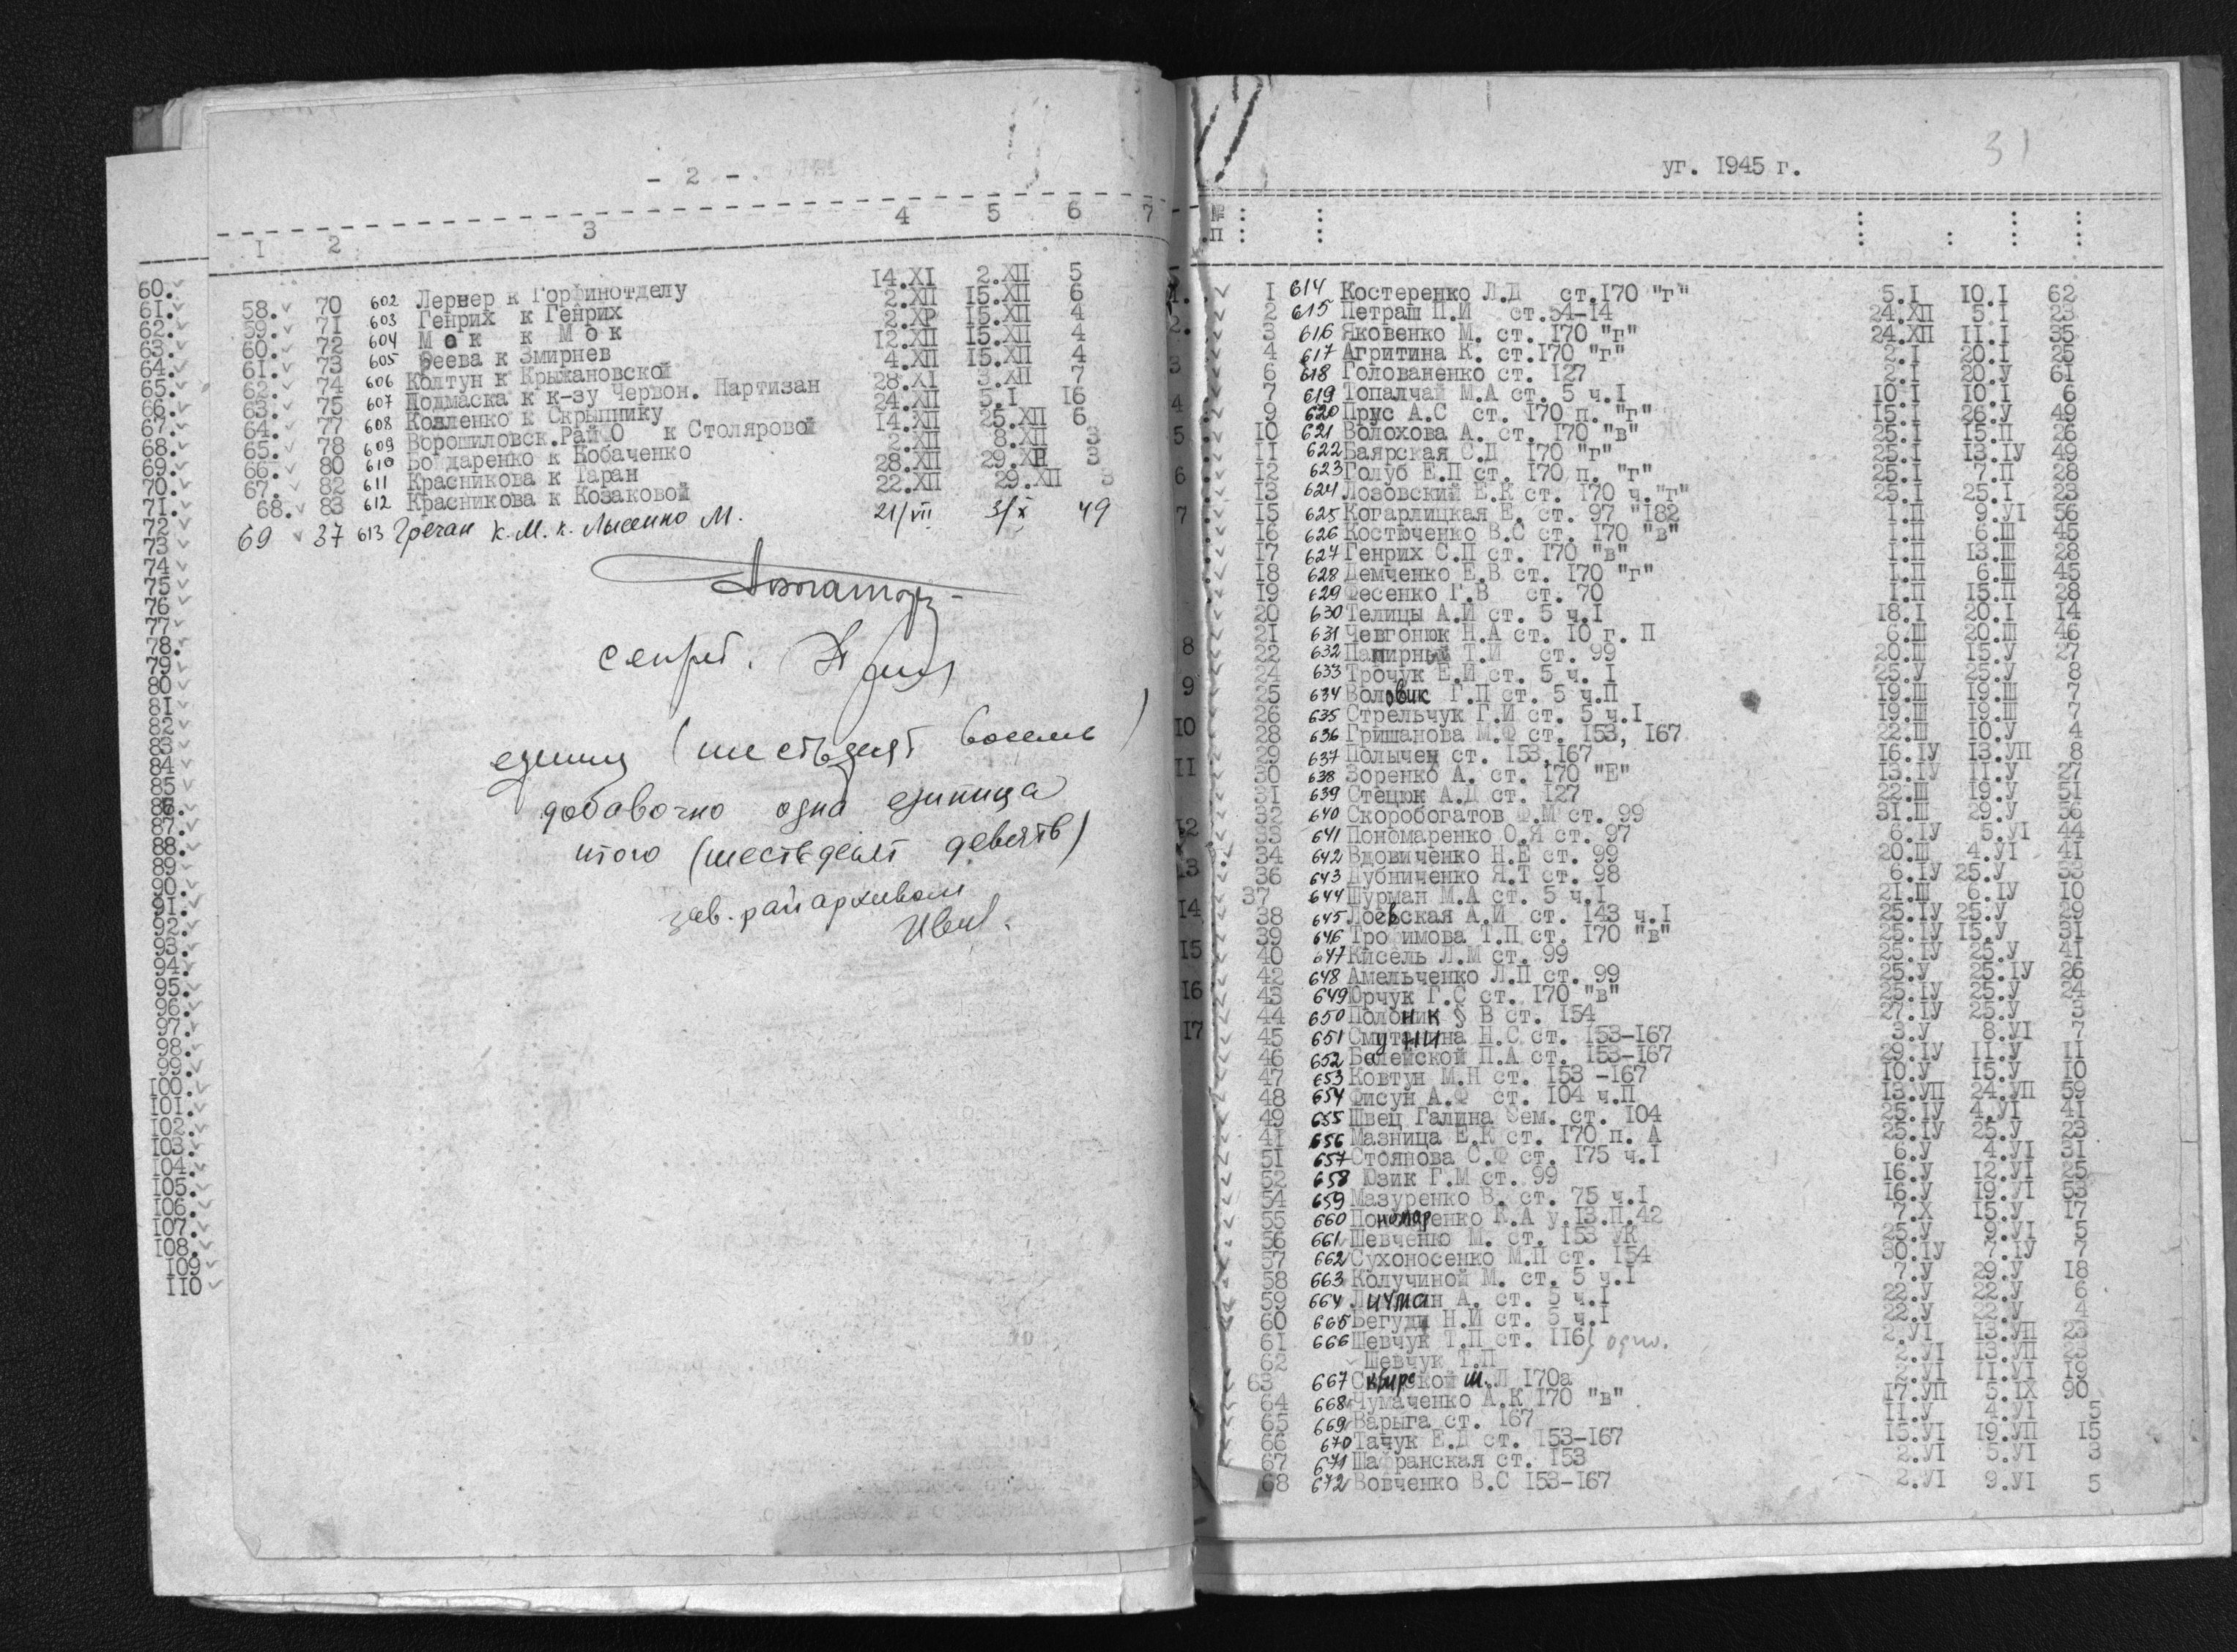 - 2 -
1 2 3 4 5 6 7
58. 70 602 Лернер к Горфинотделу 14.XI 2.XII 5
59. 71 603 Генрих к Генрих 2.XII 15.XII 6
60. 72 604 Мок к Мок 2.XP 15.XII 4
61. 73 605 Реева к Змирнев 12.XII 15.XII 4
62. 74 606 Колтун к Крыжановской 4.XII 15.XII 4
63. 75 607 Подмаска к к-зу Червон. Партизан 28.XI 3.XII 7
64. 77 608 Коваленко к Скрыпнику 24.XII 5.I 16
65. 78 609 Ворошиловск.Рай О к Столяровой 14.XII 25.XII 6
66. 80 610 Бондаренко к Кобаченко 2.XII 8.XII 3
67. 82 611 Красникова к Таран 28.XII 29.XII 3
68. 83 612 Красникова к Козаковой 22.XII 29.XII 3
69 37 613 Гречан к.М. к. Лысенко М. 21/VII 3/X 49
секрет.
единиц (шестьдесят восемь)
добавочно одна единица
итого (шестьдесят девять)
зав. райархивом
60.
61.
62.
63.
64.
65.
66.
67.
68.
69.
70.
71.
72
73
74
75
76
77
78.
79
80
81
82
83
84
85
86.
87.
88.
89
90.
91.
92.
93.
94.
95.
96.
97.
98.
99.
100.
101.
102.
103.
104.
105.
106.
107.
108.
109
110
31
уг. 1945 г.
№
п
1 614 Костеренко Л.Д ст.170 "г" 5.I 10.I 62
2 615 Петраш П.И ст.54-14 24.XII 5.I 23
3 616 Яковенко М. ст. 170 "г" 24.XII 11.I 35
4 617 Агритина К. ст.170 "г" 2.I 20.I 25
6 618 Голованенко ст. 127 2.I 20.У 61
7 619 Топалчай М.А ст. 5 ч.I 10.I 10.I 6
9 620 Прус А.С ст. 170 п. "г" 15.I 26.У 49
10 621 Волохова А. ст. 170 "в" 25.I 15.П 26
11 622 Баярская С.Д 170 "г" 25.I 13.IУ 49
12 623 Голуб Е.П ст. 170 п. "г" 25.I 7.П 28
13 624 Лозовский Е.К ст. 170 ч."г" 25.I 25.I 23
15 625 Когарлицкая Е. ст. 97 "182 1.П 9.УI 56
16 626 Костюченко В.С ст. 170 "в" 1.П 6.Ш 45
17 627 Генрих С.П ст. 170 "в" 1.П 13.Ш 28
18 628 Демченко Е.В ст. 170 "г" 1.П 6.Ш 45
19 629 Фесенко Г.В ст. 70 1.П 15.П 28
20 630 Телицы А.И ст. 5 ч.I 18.I 20.I 14
21 631 Чевгонюк Н.А ст. 10 г. П 6.Ш 20.Ш 46
22 632 Папирный Т.И ст. 99 20.Ш 15.У 27
24 633 Трочук Е.И ст. 5 ч. I 25.У 25.У 8
25 634 Воловик Г.П ст. 5 ч.П 19.Ш 19.Ш 7
26 635 Стрельчук Г.И ст. 5 ч.I 19.Ш 19.Ш 7
28 636 Гришанова М.Ф ст. 153, 167 22.Ш 10.У 4
29 637 Полычен ст. 153,167 16.IУ 13.УП 8
30 638 Зоренко А. ст. 170 "Е" 13.IУ 11.У 27
31 639 Стецюк А.Д ст. 127 22.Ш 19.У 51
32 640 Скоробогатов Ф.М ст. 99 31.Ш 29.У 56
33 641 Пономаренко О.Я ст. 97 6.IУ 5.УI 44
34 642 Вдовиченко Н.Е ст. 99 20.Ш 4.УI 41
36 643 Дубниченко Я.Т ст. 98 6.IУ 25.У 33
37 644 Шурман М.А ст. 5 ч.I 21.Ш 6.IУ 10
38 645 Лоевская А.И ст. 143 ч.I 25.IУ 25.У 29
39 646 Трофимова Т.П ст. 170 "в" 25.IУ 15.У 31
40 647 Кисель Л.М ст. 99 25.IУ 25.У 41
42 648 Амельченко Л.П ст. 99 25.У 25.IУ 26
43 649 Юрчук Г.С ст. 170 "в" 25.IУ 25.У 24
44 650 Полоник § В ст. 154 27.IУ 25.У 3
45 651 Н.С ст. 153-167 3.У 8.УI 7
46 652 Белейской П.А ст. 153-167 29.IУ 11.У 11
47 653 Ковтун М.Н ст. 153 -167 10.У 15.У 10
48 654 Фисун А.Ф ст. 104 ч.П 13.УП 24.УП 59
49 655 Швец Галина Сем. ст. 104 25.IУ 4.УI 41
41 656 Мазница Е.К ст. 170 п. А 25.IУ 25.У 23
51 657 Стоянова С.Ф ст. 175 ч.I 6.У 4.УI 31
52 658 Юзик Г.М ст. 99 16.У 12.УI 25
54 659 Мазуренко В. ст. 75 ч.I 16.У 19.УI 53
55 660 Пономаренко К.А у.13.П.42 7.X 15.У 17
56 661 Шевченко М. ст. 153 УК 25.У 9.УI 5
57 662 Сухоносенко М.П ст. 154 30.IУ 7.IУ 7
58 663 Колучиной М. ст. 5 ч.I 7.У 29.У 18
59 664 Личман А. ст. 5 ч.I 22.У 22.У 6
60 665 Бегуды Н.И ст. 5 ч.I 22.У 22.У 4
61 666 Шевчук Т.П ст. 116 } одно. 2.УI 13.УП 23
62 Шевчук Т.П 2.УI 13.УП 23
63 667 Л 170а 2.УI 11.УI 19
64 668 Чумаченко А.К 170 "в" 17.УП 5.IX 90
65 669 Варыга ст. 167 11.У 4.УI 5
66 670 Тачук Е.Д ст. 153-167 15.УI 19.УП 15
67 671 Шафранская ст. 153 2.УI 5.УI 3
68 672 Вовченко В.С 153-167 2.УI 9.УI 5